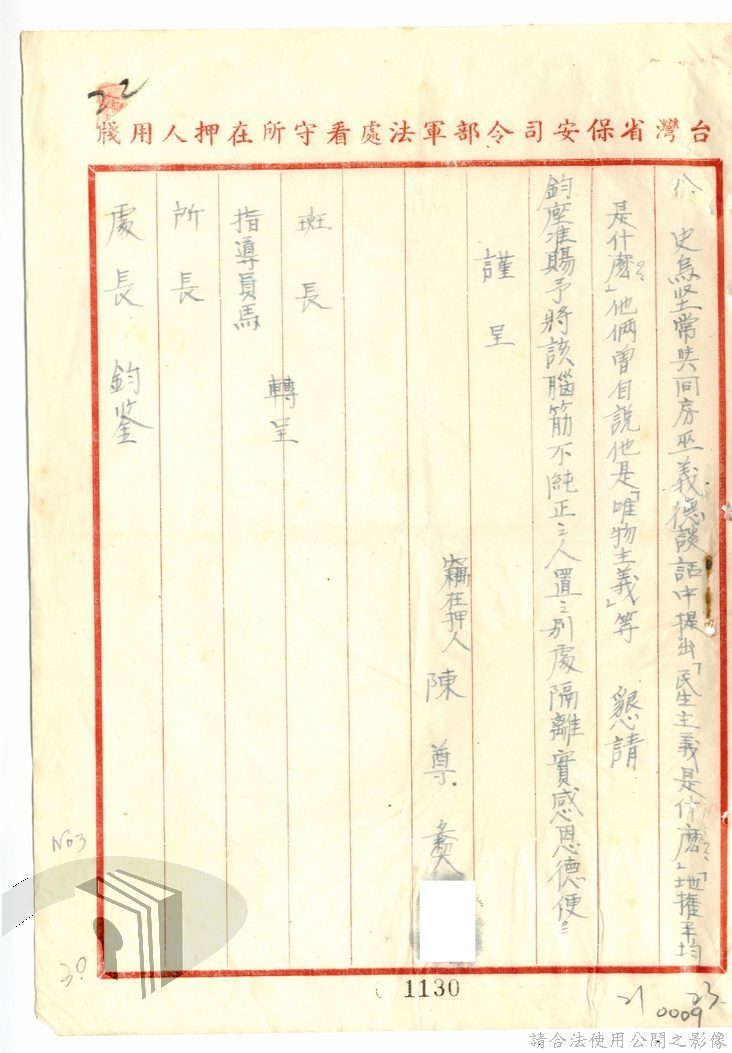 22
台灣省保安司令部軍法處看守所在押人用牋
八、史烏堅常與同房巫義德談話中提出「民生主義是什麼」「地權平均
是什麼」他倆曾自說他是「唯物主義」等　懇請
鈞座准賜予將該腦筋不純正之人置之別處隔離實感恩德便
謹呈
竊在押人 陳尊彝
班長
轉呈
指導員馬
所長
處長 鈞鉴
No3
30
1130
21
23
0009
請合法使用公開之影像